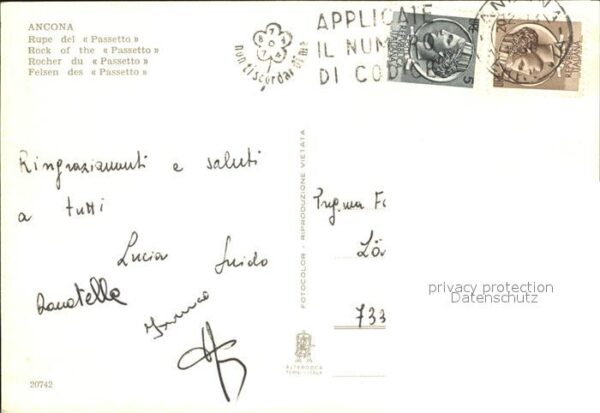 ANCONA
Rupe del « Passetto »
Rock of the « Passetto »
Rocher du « Passetto »
Felsen des « Passetto »
non ti scordar di me
APPLICATE
IL NUM
DI COD
ANCONA
Ringraziamenti e saluti
a tutti
Lucia Guido
Donatella
Franco
FOTOCOLOR - RIPRODUZIONE VIETATA
Preg.ma Fa
Lö
733
privacy protection
Datenschutz
ALTEROCCA
TERNI - ITALY
20742